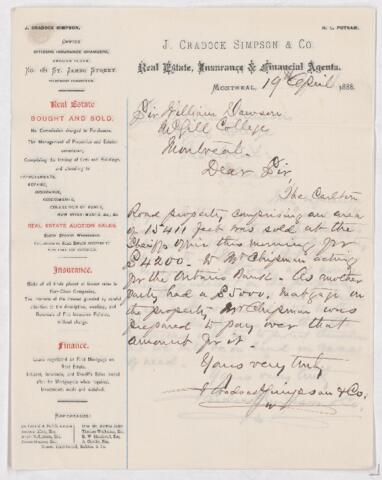 J. CRADOCK SIMPSON,
H. L. PUTNAM.
OFFICE
CITIZENS INSURANCE CHAMBERS,
No. 181 ST. JAMES STREET.
J. CRADOCK SIMPSON & CO.
Real Estate, Insurance & Financial Agents.
MONTREAL, 19th April 1888.
Real Estate
BOUGHT AND SOLD.
No Commission charged to Purchasers.
The Management of Properties and Estates
undertaken,
Comprising the letting of
and attending to
IMPROVEMENTS,
REPAIRS,
INSURANCE,
ASSESSMENTS,
COLLECTION OF RENTS,
REAL ESTATE AUCTION SALES
Insurance.
Risks of all kinds placed at lowest rates in
First-Class Companies.
The interests of the Insured guarded by careful
attention to the description, wording, and
Renewals of Fire Insurance Policies,
without charge.
Finance.
Loans negotiated on First Mortgage on
Real Estate.
REFERENCES:
Sir William Dawson
McGill College
Montreal.
Dear Sir,
The Carlton
Road property comprising an area
of 15411 feet was sold at the
Sheriff's Office this morning for
$4200. to Mr Chapman acting
for the Ontario Bank. As another
party had a $5000. mortgage on
the property, Mr Chapman was
prepared to pay over that
amount for it.
Yours very truly
J Cradock Simpson & Co.